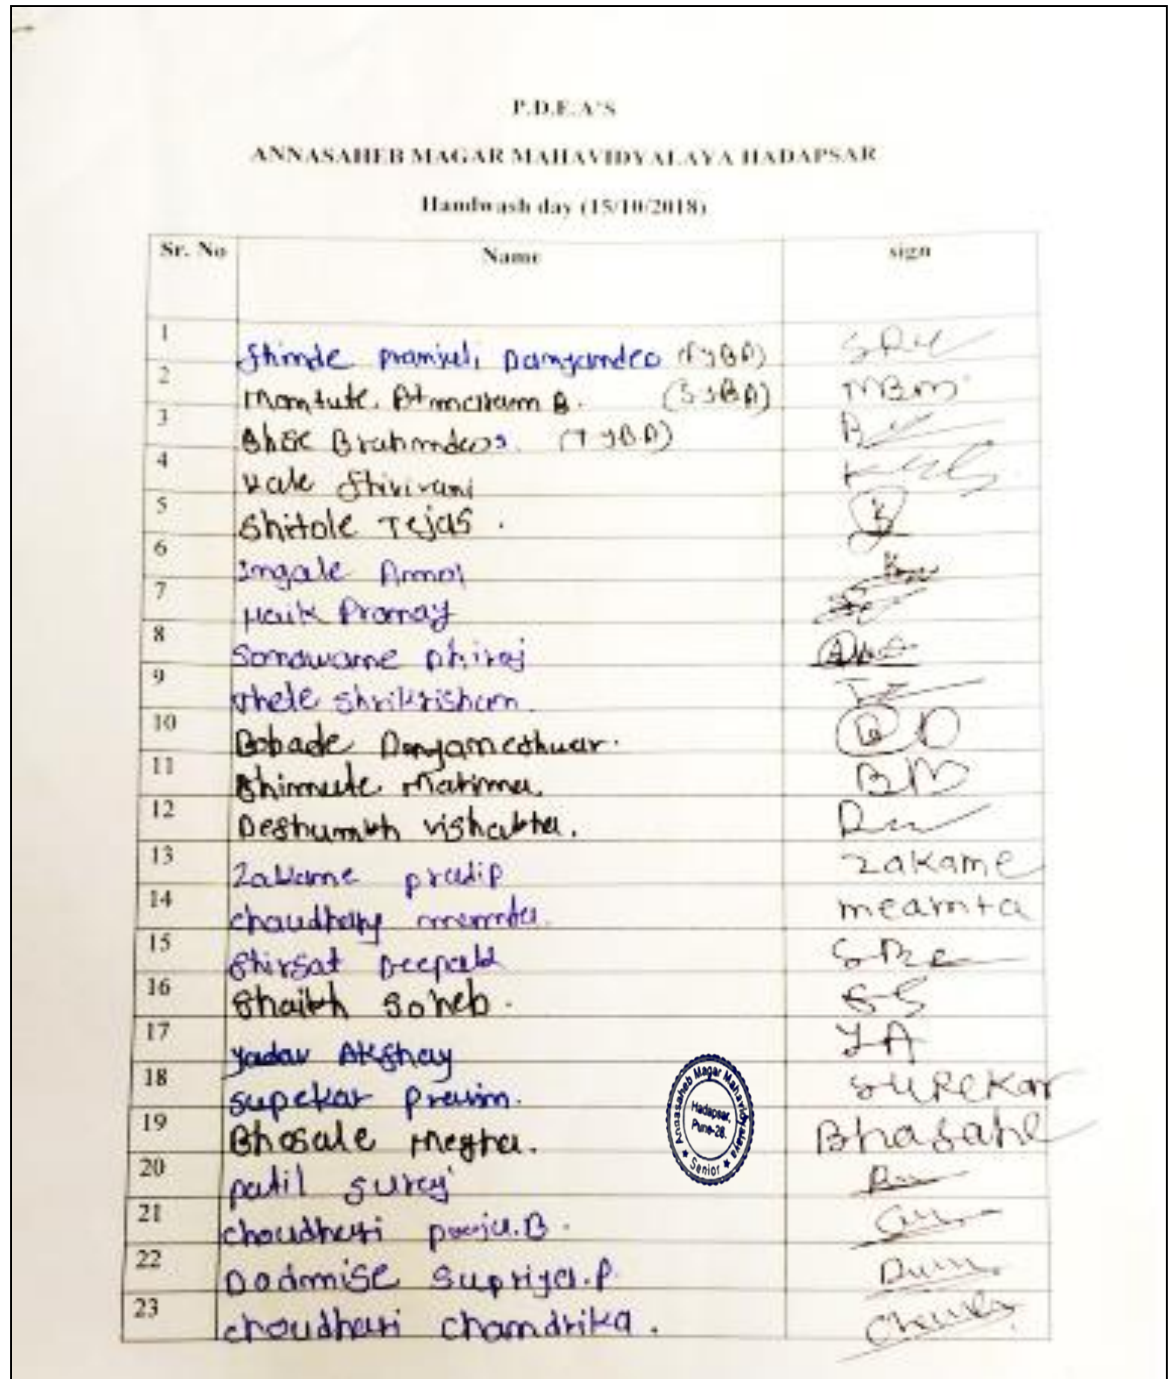 P.D.E.A'S
ANNASAHEB MAGAR MAHAVIDYALAYA HADAPSAR
Handwash day (15/10/2018)
Sr. No Name sign
1 Shinde Damyamdeo (FyBA)
2 B. (SyBA) MBM
3 Bhise Brahmdeo (TyBA)
4 Kale Shivrani
5 Shitole Tejas.
6 Ingale Anmol
7 Naik Pranay
8 Sonawame Dhiraj
9 Thele Shrikrishan.
10 Bobade Dnyameshwar.
11 Bhimute Mahima. BM
12 Deshumkh vishakha.
13 Zakame pradip Zakame
14 chaudhary mamta. meamta
15 Shirsat Deepak
16 Shaikh Soheb. SS
17 yadav Akshay YA
18 supekar Pravin. SUPEKar
19 Bhosale Megha. Bhasahe
20 patil suraj
21 choudhari pooja.B.
22 Dadmise Supriya.P.
23 choudhari chamdrika.
Annasaheb Magar Mahavidyalaya
Hadapsar,
Pune-28.
★ Senior ★